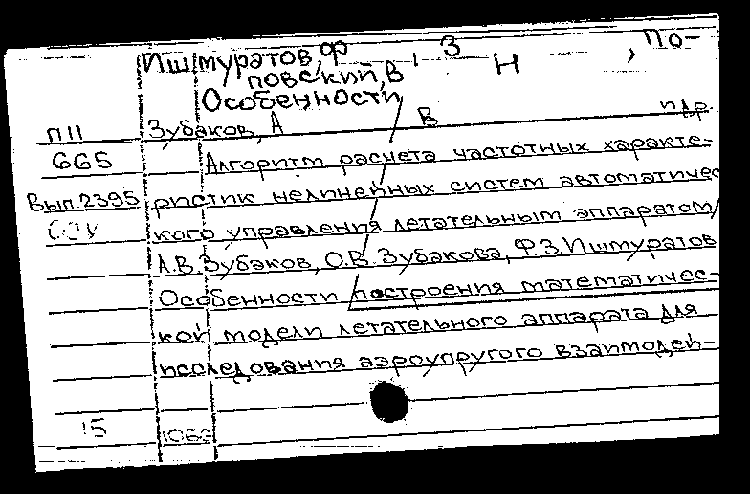 Ишмуратов, Ф З Н , По-
повский, В
Особенности
П11 Зубаков, А В и др.
665 Алгоритм расчета частотных характе-
Вып.2395 ристик нелинейных систем автоматичес
кого управления летательным аппаратом/
А.В.Зубаков, О.В.Зубакова, Ф.З.Ишмуратов
Особенности построения математичес-
кой модели летательного аппарата для
исследования аэроупругого взаимодей-
15